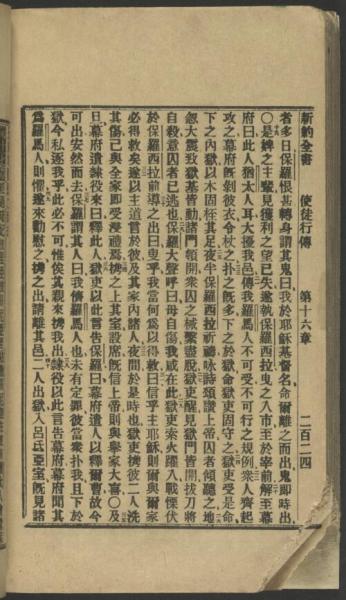 新約全書 使徒行傳 第十六章 二百二四
者多日保羅恨甚轉身謂其鬼曰我於耶穌基督名命爾離之而出鬼卽時出
○是婢之主輩見獲利之望已失遂執保羅西拉曳之入市至於宰前解至幕
府曰此人猶太人耳大擾我邑傳我羅馬人不可受不可行之規例衆人齊起
攻之幕府旣剝彼衣令杖之扑之旣多下之於獄命獄吏固守之獄吏受是命
下之內獄以木固桎其足夜半保羅西拉祈禱咏詩頌讚上帝囚者傾聽之地
忽大震致獄基皆動諸門頓開衆囚之械繫盡脫獄吏醒見獄門皆開拔刀將
自殺意囚者已逃也保羅大聲呼曰毋自傷我咸在此獄吏索火躍入戰慄伏
於保羅西拉前導之出曰叟乎我當何爲以得救曰信乎主耶穌則爾與爾家
必得救矣遂以主道言於彼及其家內諸人夜間於是時也獄吏擕彼二人洗
其傷己與全家卽受浸禮爲擕之上其室設席旣信上帝則與舉家大喜○及
旦幕府遣隸役來曰釋此人獄吏以此言告保羅曰幕府遣人以釋爾曹故今
可出安然而去保羅謂其人曰我儕羅馬人也未有定罪彼當衆扑我且下於
獄今私逐我乎此必不可惟俟其親來擕我出隸役以此言告幕府幕府聞其
爲羅馬人則懼遂來勸慰之擕之出請離其邑二人出獄入呂氐亞室旣見諸